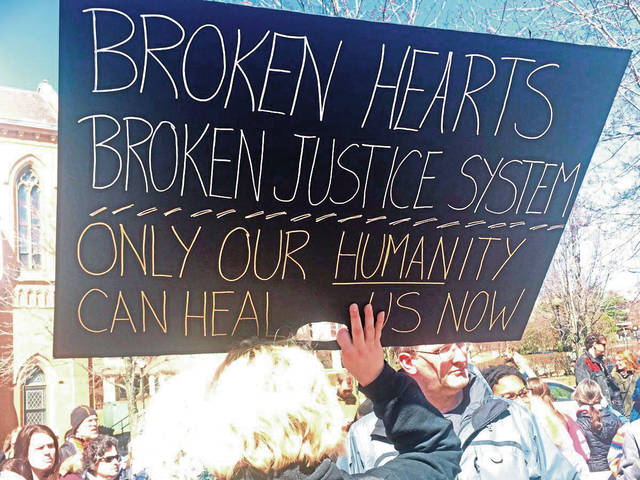 BROKEN HEARTS
BROKEN JUSTICE SYSTEM
ONLY OUR HUMANITY
CAN HEAL US NOW